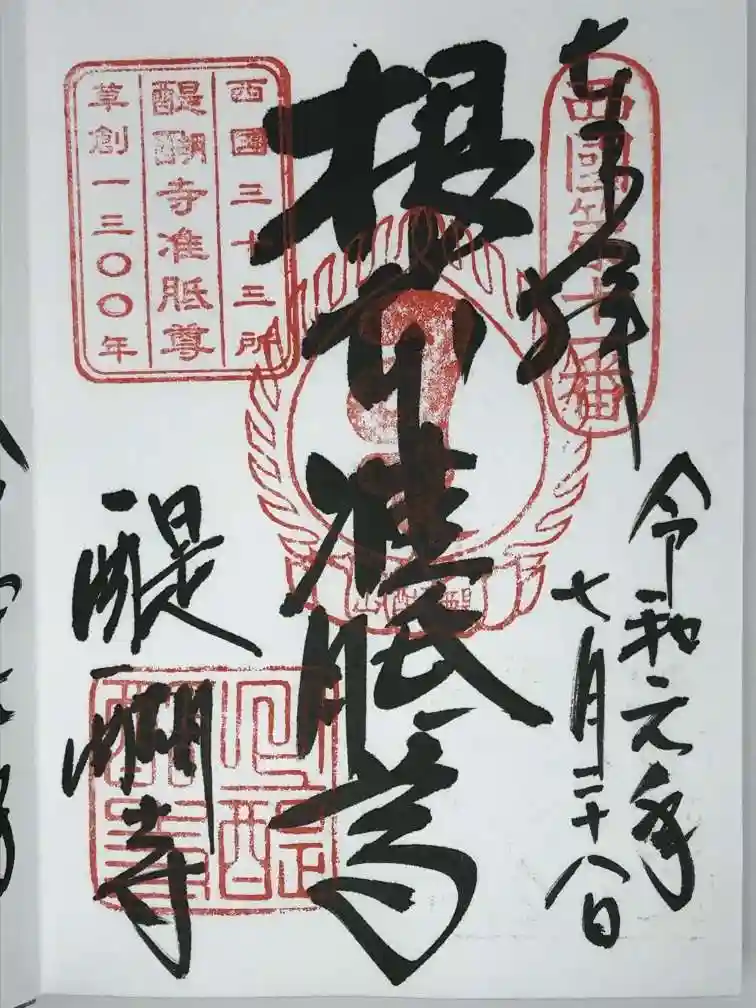 奉拝
西國第十一番
令和元年
七月二十八日
根本准胝尊
西國三十三所
醍醐寺准胝尊
草創一三〇〇年
醍醐山
醍醐寺